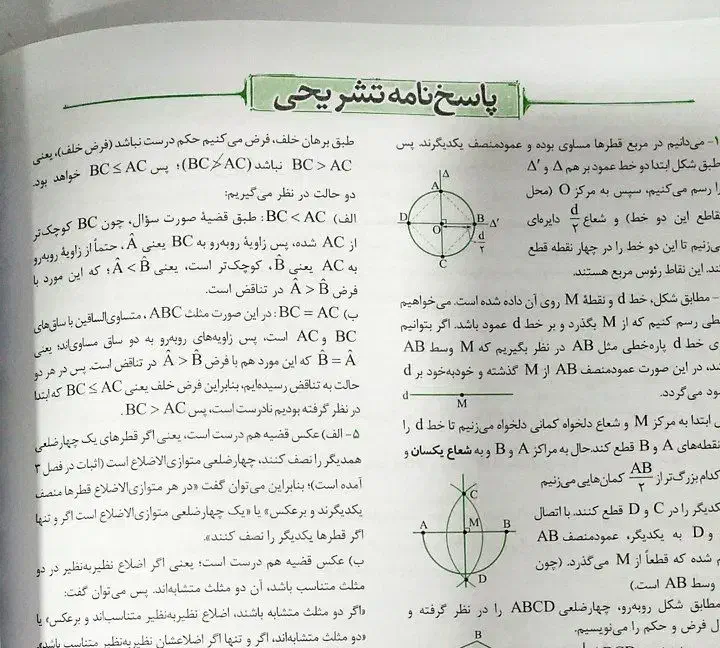 پاسخ‌نامه تشریحی
۱- می‌دانیم در مربع قطرها مساوی بوده و عمودمنصف یکدیگرند. پس
طبق شکل ابتدا دو خط عمود بر هم Δ و Δ′
را رسم می‌کنیم، سپس به مرکز O (محل
تقاطع این دو خط) و شعاع d/۲ دایره‌ای
می‌زنیم تا این دو خط را در چهار نقطه قطع
کند. این نقاط رئوس مربع هستند.
Δ
A
D
B
Δ′
O
d/۲
C
- مطابق شکل، خط d و نقطهٔ M روی آن داده شده است. می‌خواهیم
خطی رسم کنیم که از M بگذرد و بر خط d عمود باشد. اگر بتوانیم
روی خط d پاره‌خطی مثل AB در نظر بگیریم که M وسط AB
باشد، در این صورت عمودمنصف AB از M گذشته و خودبه‌خود بر d
عمود می‌گردد.
d
M
ابتدا به مرکز M و شعاع دلخواه کمانی دلخواه می‌زنیم تا خط d را
نقطه‌های A و B قطع کند.حال به مراکز A و B و به شعاع یکسان و
کدام بزرگ‌تر از AB/۲ کمان‌هایی می‌زنیم
یکدیگر را در C و D قطع کنند. با اتصال
و D به یکدیگر، عمودمنصف AB
شده که قطعاً از M می‌گذرد. (چون
وسط AB است.)
C
A
M
B
D
مطابق شکل روبه‌رو، چهارضلعی ABCD را در نظر گرفته و
فرض و حکم را می‌نویسیم.
B
طبق برهان خلف، فرض می‌کنیم حکم درست نباشد (فرض خلف)، یعنی
BC > AC نباشد (BC ≯ AC)؛ پس BC ≤ AC خواهد بود.
دو حالت در نظر می‌گیریم:
الف) BC < AC: طبق قضیهٔ صورت سؤال، چون BC کوچک‌تر
از AC شده، پس زاویهٔ روبه‌رو به BC یعنی Â، حتماً از زاویهٔ روبه‌رو
به AC یعنی B̂، کوچک‌تر است، یعنی Â < B̂؛ که این مورد با
فرض Â > B̂ در تناقض است.
ب) BC = AC: در این صورت مثلث ABC، متساوی‌الساقین با ساق‌های
BC و AC است، پس زاویه‌های روبه‌رو به دو ساق مساوی‌اند؛ یعنی
B̂ = Â که این مورد هم با فرض Â > B̂ در تناقض است. پس در هر دو
حالت به تناقض رسیده‌ایم، بنابراین فرض خلف یعنی BC ≤ AC که ابتدا
در نظر گرفته بودیم نادرست است، پس BC > AC.
۵- الف) عکس قضیه هم درست است، یعنی اگر قطرهای یک چهارضلعی
همدیگر را نصف کنند، چهارضلعی متوازی‌الاضلاع است (اثبات در فصل ۳
آمده است)؛ بنابراین می‌توان گفت «در هر متوازی‌الاضلاع قطرها منصف
یکدیگرند و برعکس» یا «یک چهارضلعی متوازی‌الاضلاع است اگر و تنها
اگر قطرها یکدیگر را نصف کنند».
ب) عکس قضیه هم درست است؛ یعنی اگر اضلاع نظیربه‌نظیر در دو
مثلث متناسب باشد، آن دو مثلث متشابه‌اند. پس می‌توان گفت:
«اگر دو مثلث متشابه باشند، اضلاع نظیربه‌نظیر متناسب‌اند و برعکس» یا
«دو مثلث متشابه‌اند، اگر و تنها اگر اضلاعشان نظیربه‌نظیر متناسب باشد».